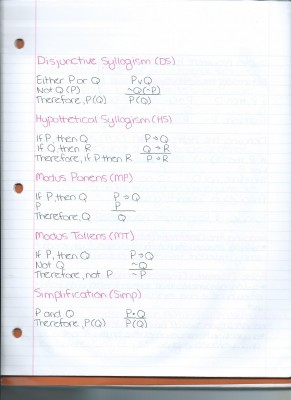 Disjunctive Syllogism (DS)
Either P or Q PvQ
Not Q (P) ~Q(~P)
Therefore, P(Q) P(Q)
Hypothetical Syllogism (HS)
If P, then Q P⊃Q
If Q, then R Q⊃R
Therefore, if P then R P⊃R
Modus Ponens (MP)
If P, then Q P⊃Q
P P
Therefore, Q Q
Modus Tollens (MT)
If P, then Q P⊃Q
Not Q ~Q
Therefore, not P ~P
Simplification (Simp)
P and Q P•Q
Therefore, P(Q) P(Q)